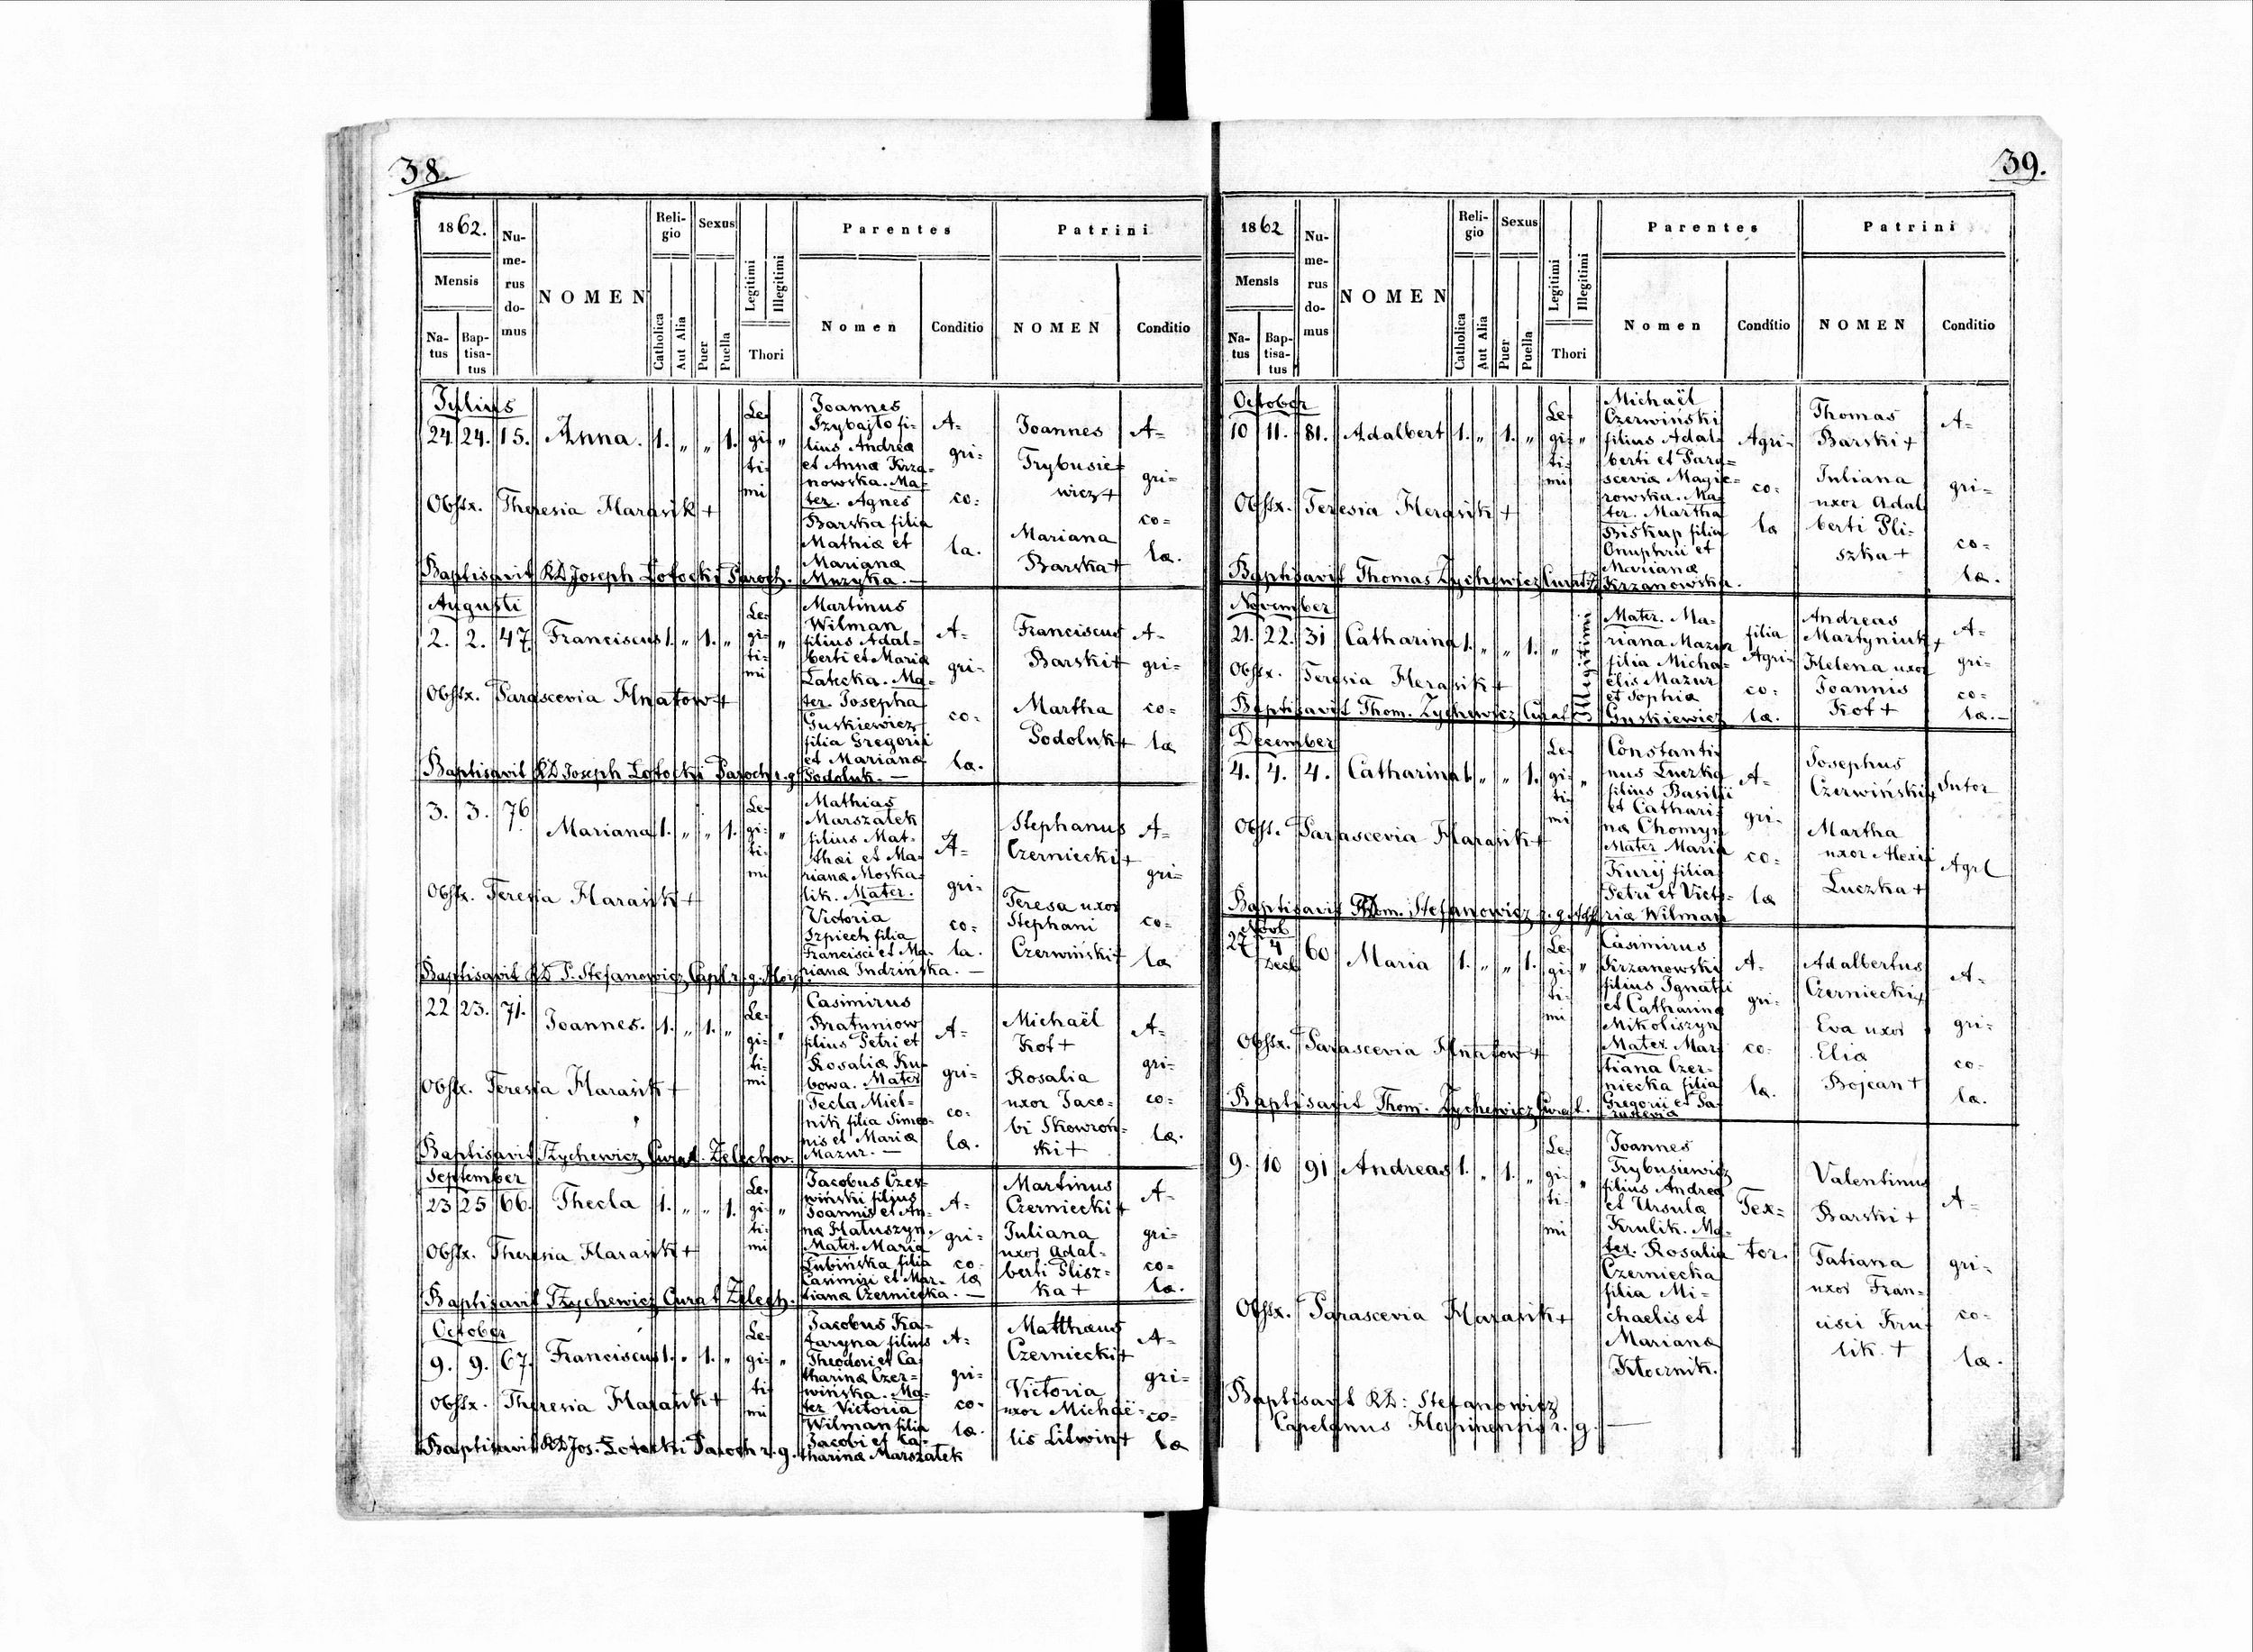 38.
1862.
Mensis
Na-
tus
Bap-
tisa-
tus
Nu-
me-
rus
do-
mus
NOMEN
Reli-
gio
Catholica
Aut Alia
Sexus
Puer
Puella
Legitimi
Illegitimi
Thori
Parentes
Nomen
Conditio
Patrini
NOMEN
Conditio
Julius
24. 24. 15. Anna. 1. „ „ 1.
Le-
gi- „
ti-
mi
Joannes
Szybajło fi-
lius Andreæ
et Annæ Krza-
nowska. Ma-
ter. Agnes
Barska filia
Mathiæ et
Marianæ
Muzyka. —
A-
gri-
co-
la.
Joannes
Trybusie-
wicz +
Mariana
Barska +
A-
gri-
co-
læ.
Obstx. Theresia Harasik +
Baptisavit RD Joseph Łotocki Paroch.
Augusti
2. 2. 47. Franciscus 1. „ 1. „
Le-
gi- „
ti-
mi
Martinus
Wilman
filius Adal-
berti et Mariæ
Łatecka. Ma-
ter. Josepha
Guskiewicz
filia Gregorii
et Marianæ
Podoluk. —
A-
gri-
co-
læ.
Franciscus
Barski +
Martha
Podoluk +
A-
gri-
co-
læ
Obstx. Parascevia Hnatow +
Baptisavit RD Joseph Łotocki Paroch r. g.
3. 3. 76. Mariana 1. „ „ 1.
Le-
gi- „
ti-
mi
Mathias
Marszałek
filius Mat-
thæi et Ma-
rianæ Moska-
lik. Mater.
Victoria
Szpiech filia
Francisci et Ma-
rianæ Indzińska. —
A-
gri-
co-
la.
Stephanus
Czerniecki +
Teresa uxor
Stephani
Czerwiński +
A-
gri-
co-
læ
Obstx. Teresia Harasik +
Baptisavit RD P. Stefanowicz Capl. r. g.
22 23. 71. Joannes. 1. „ 1. „
Le-
gi- „
ti-
mi
Casimirus
Bratuniow
filius Petri et
Rosaliæ Ku-
bowa. Mater
Tecla Miel-
nik filia Simeo-
nis et Mariæ
Mazur. —
A-
gri-
co-
læ.
Michaël
Kot +
Rosalia
uxor Jaco-
bi Skowroń-
ski +
A-
gri-
co-
læ.
Obstx. Teresia Harasik +
Baptisavit TZychewicz Curat. Zelechov.
September
23 25 66. Thecla 1. „ „ 1.
Le-
gi- „
ti-
mi
Jacobus Czer-
wiński filius
Joannis et An-
næ Hałuszyn.
Mater. Maria
Łubińska filia
Casimiri et Mar-
tianæ Czerniecka. —
A-
gri-
co-
læ
Martinus
Czerniecki +
Juliana
uxor Adal-
berti Plisz-
ka +
A-
gri-
co-
læ.
Obstx. Theresia Harasik +
Baptisavit TZychewicz Curat Zelech.
October
9. 9. 67. Franciscus 1. „ 1. „
Le-
gi- „
ti-
mi
Jacobus Ka-
taryna filius
Theodori et Ca-
tharinæ Czer-
wińska. Ma-
ter Victoria
Wilman filia
Jacobi et Ka-
tharinæ Marszałek
A-
gri-
co-
læ.
Matthæus
Czerniecki +
Victoria
uxor Michaë-
lis Litwin +
A-
gri-
co-
læ
Obstx. Theresia Harasik +
Baptisavit RD Jos. Łotocki Paroch r. g.
39.
1862
Mensis
Na-
tus
Bap-
tisa-
tus
Nu-
me-
rus
do-
mus
NOMEN
Reli-
gio
Catholica
Aut Alia
Sexus
Puer
Puella
Legitimi
Illegitimi
Thori
Parentes
Nomen
Conditio
Patrini
NOMEN
Conditio
October
10 11. 81. Adalbert 1. „ 1. „
Le-
gi- „
ti-
mi
Michaël
Czerwiński
filius Adal-
berti et Para-
sceviæ Magie-
rowska. Ma-
ter. Martha
Biskup filia
Onuphrii et
Marianæ
Krzanowska.
Agri-
co-
læ
Thomas
Barski +
Juliana
uxor Adal
berti Pli-
szka +
A-
gri-
co-
læ.
Obstx. Teresia Herasik +
Baptisavit Thomas Zychewicz Curat.
November
21. 22. 31 Catharina 1. „ „ 1. „
Illegitimi
Mater. Ma-
riana Mazur
filia Micha-
elis Mazur
et Sophiæ
Guskiewicz
filia
Agri-
co-
læ.
Andreas
Martyniuk +
Helena uxor
Joannis
Kot +
A-
gri-
co-
læ. —
Obstx. Teresia Herasik +
Baptisavit Thom. Zychewicz Curat
December
4. 4. 4. Catharina 1. „ „ 1.
Le-
gi- „
ti-
mi
Constanti-
nus Łuczka
filius Basilii
et Cathari-
næ Chomyn
Mater Maria
Kurij filia
Petri et Victo-
riæ Wilman
A-
gri-
co-
læ
Josephus
Czerwiński +
Martha
uxor Alexii
Łuczka +
Sutor
Agrl
Obst. Parascevia Harasik +
Baptisavit Stefanowicz r. g.
Novb
27 4 60 Maria 1. „ „ 1.
Decb
Le-
gi- „
ti-
mi
Casimirus
Krzanowski
filius Ignatii
et Catharinæ
Mikoliszyn
Mater. Mar-
tiana Czer-
niecka filia
Gregorii et Pa-
rasceviæ
A-
gri-
co-
læ.
Adalbertus
Czerniecki +
Eva uxor
Eliæ
Bojcan +
A-
gri-
co-
læ.
Obstx. Parascevia Hnatow +
Baptisavit Thom. Zychewicz Curat.
9. 10 91 Andreas 1. „ 1. „
Le-
gi- „
ti-
mi
Joannes
Trybusiewicz
filius Andreæ
et Ursulæ
Krulik. Ma-
ter. Rosalia
Czerniecka
filia Mi-
chaelis et
Marianæ
Kłocznik.
Tex-
tor.
Valentinus
Barski +
Tatiana
uxor Fran-
cisci Kru-
lik. +
A-
gri-
co-
læ.
Obstx. Parascevia Harasik +
Baptisavit RD: Stefanowicz
Capelanus Horpinensis r. g. —